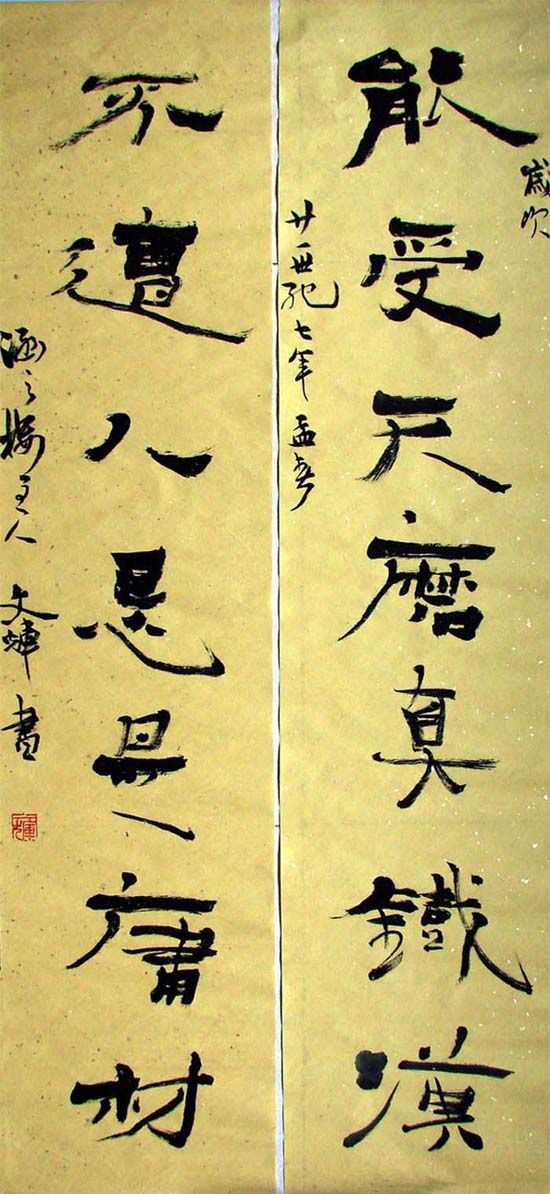 能受天磨真鐵漢
歲次
廿一世紀七年孟春
不遭人忌是庸材
涵之樓主人 文
書